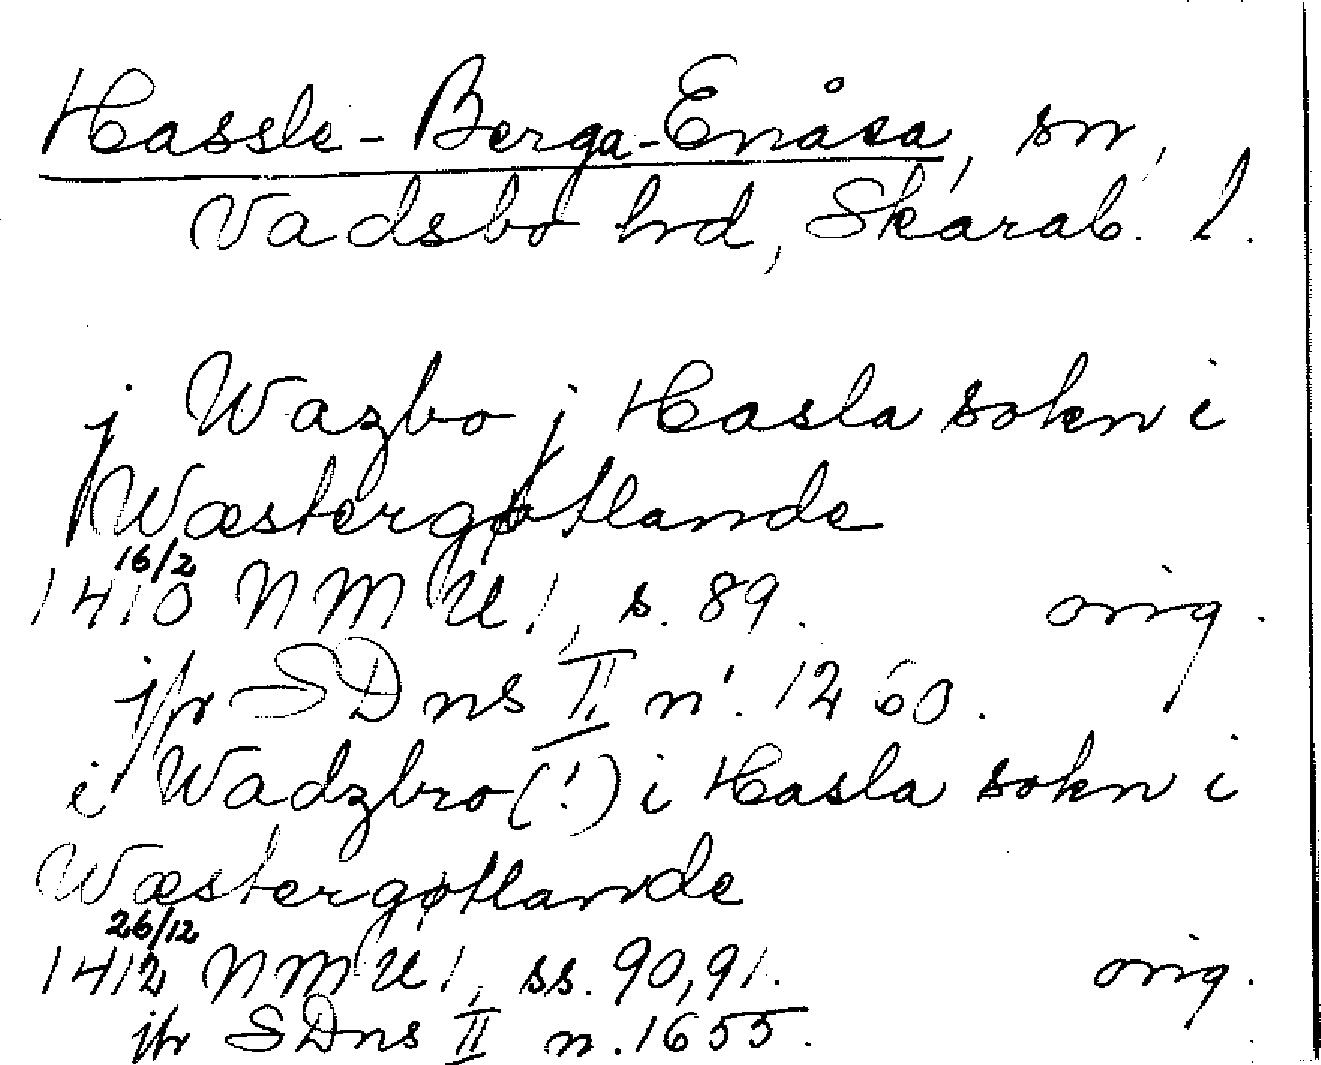 Hassle-Berga-Enåsa, sn,
Vadsbo hd, Skarab. l.
j Wazbo j Hasla sokn i
Wæstergøtlande
16/2
1410 NMU 1, s. 89. orig.
jfr SDns II n. 1260.
i Wadzbro (!) i Hasla sokn i
Wæstergøtlande
26/12
1412 NMU 1, ss. 90, 91. orig.
jfr SDns II n. 1655.